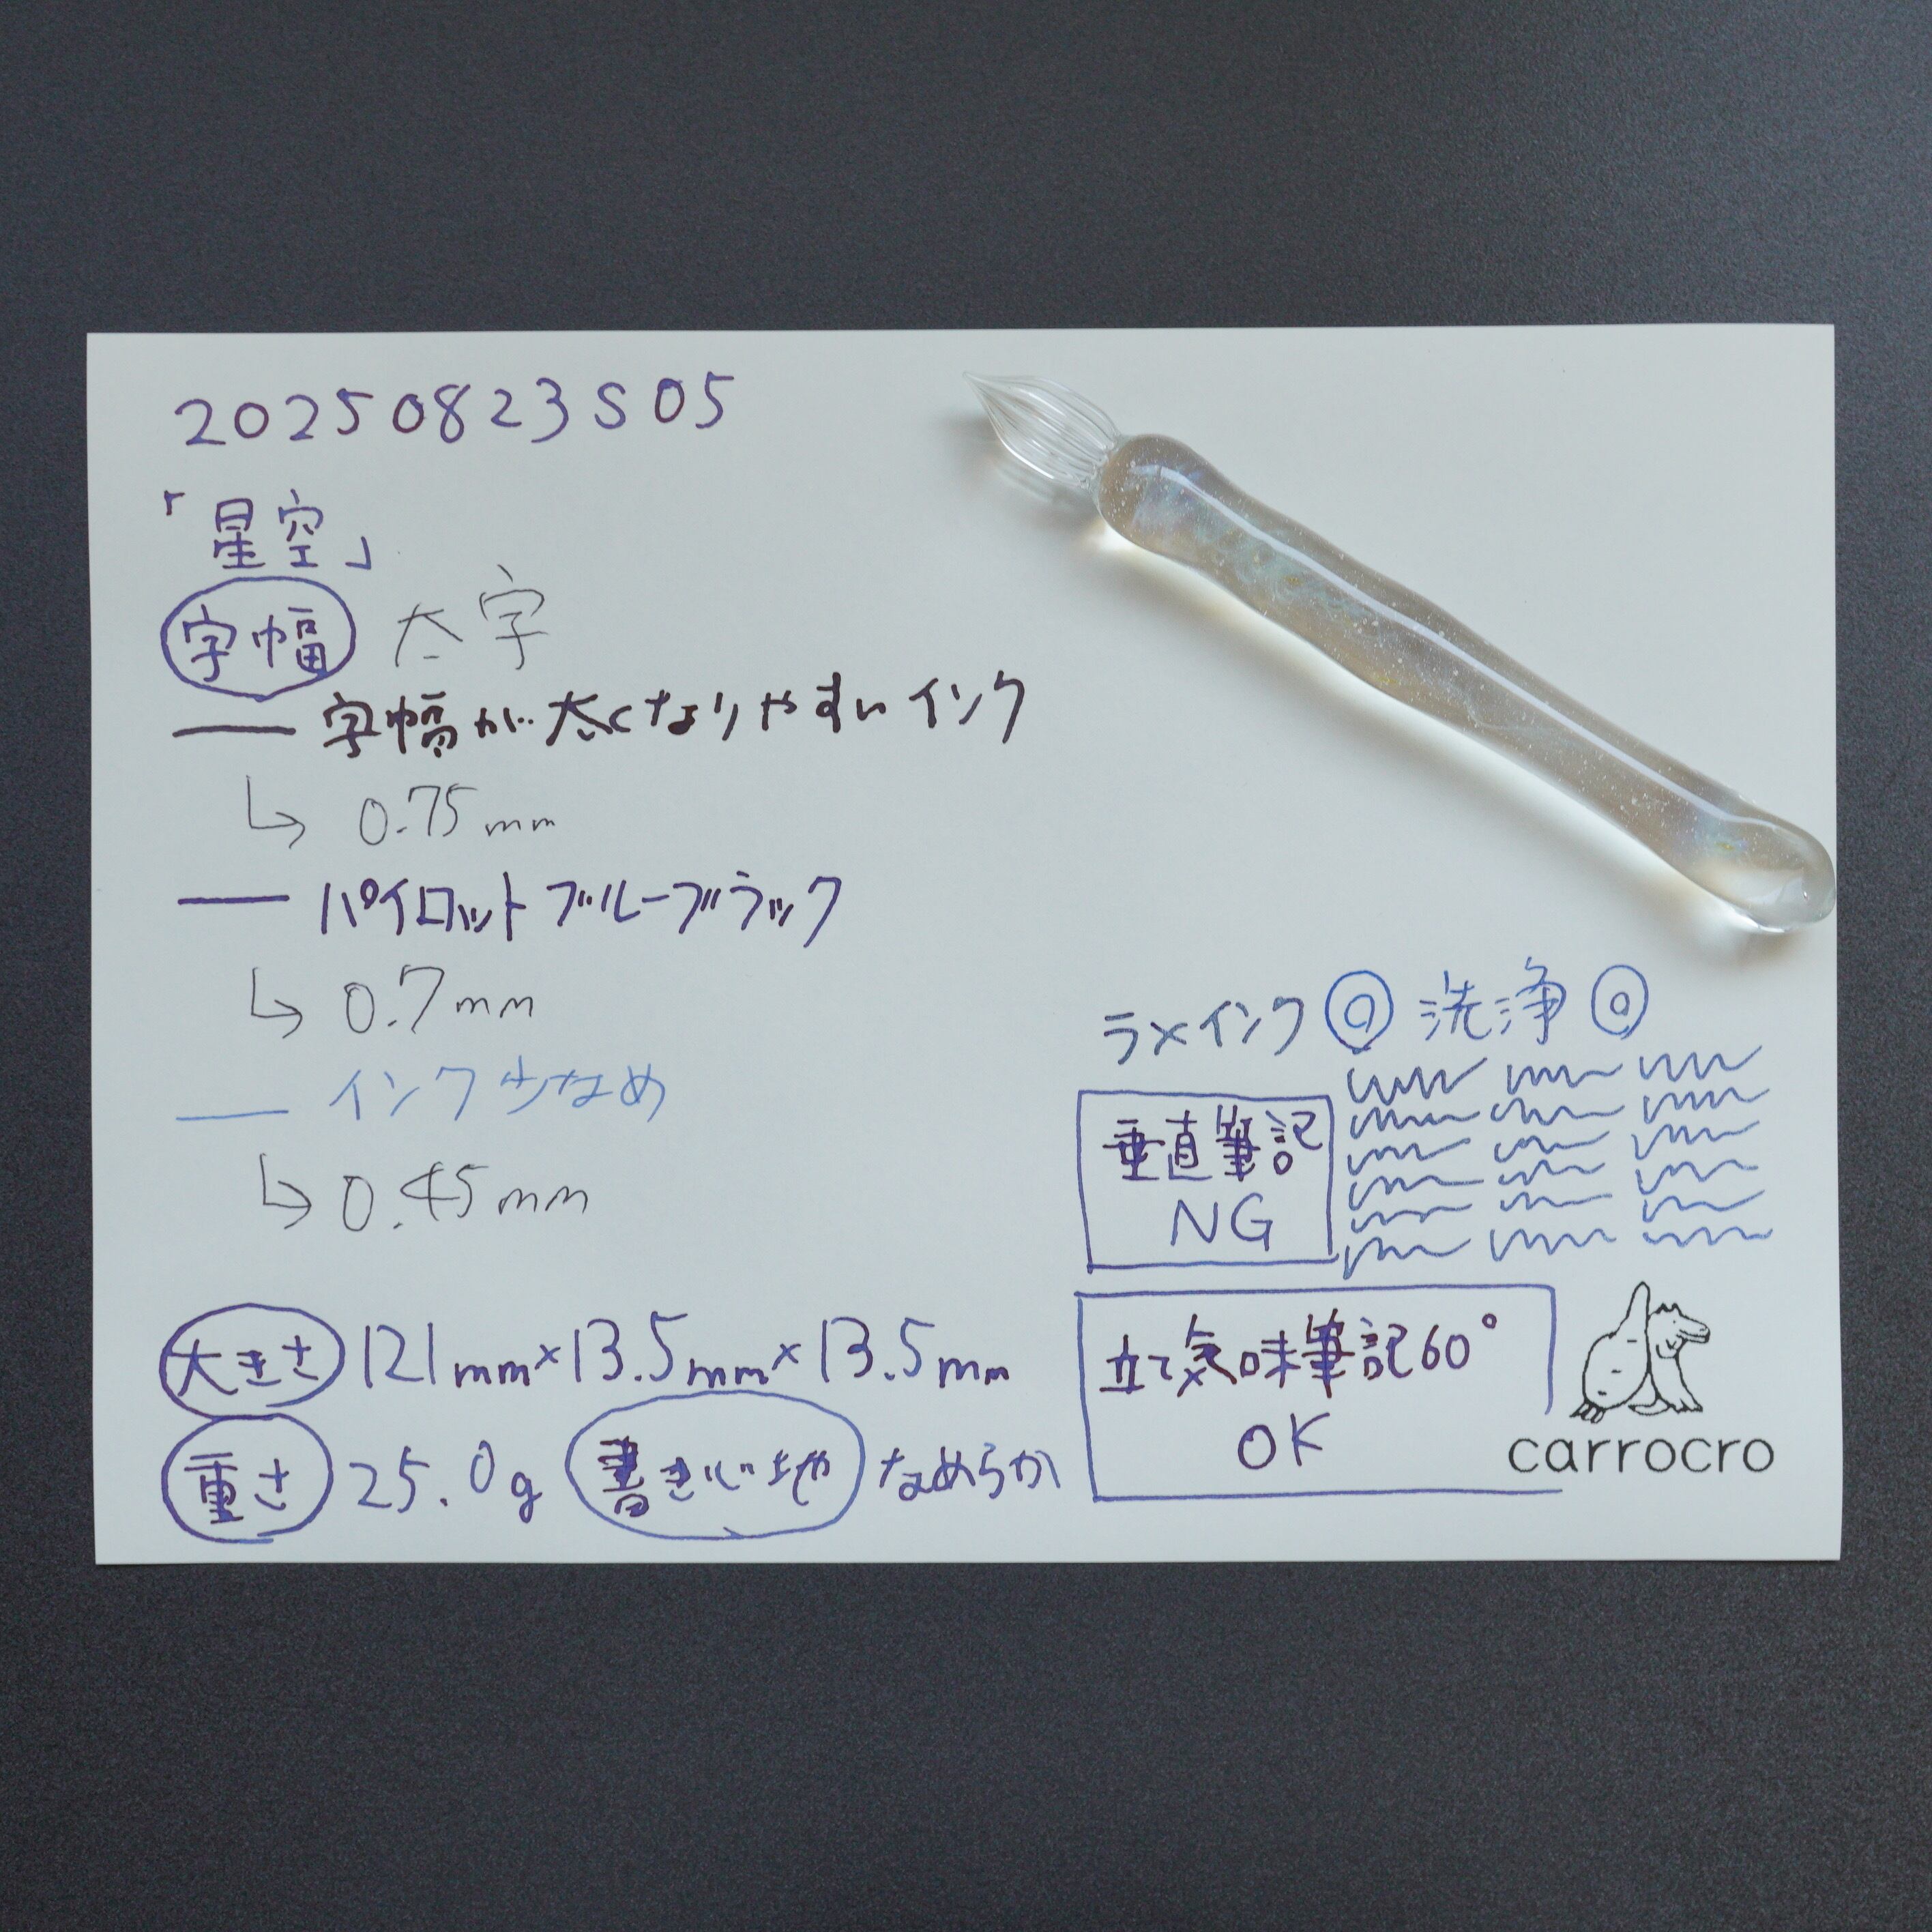 20250823S05
「星空」
字幅 太字
字幅が太くなりやすいインク
0.75mm
パイロットブルーブラック
0.7mm
インク少なめ
0.45mm
大きさ 121mm×13.5mm×13.5mm
重さ 25.0g 書き心地 なめらか
ラメインク ◎ 洗浄 ◎
垂直筆記
NG
立て気味筆記60°
OK
carrocro